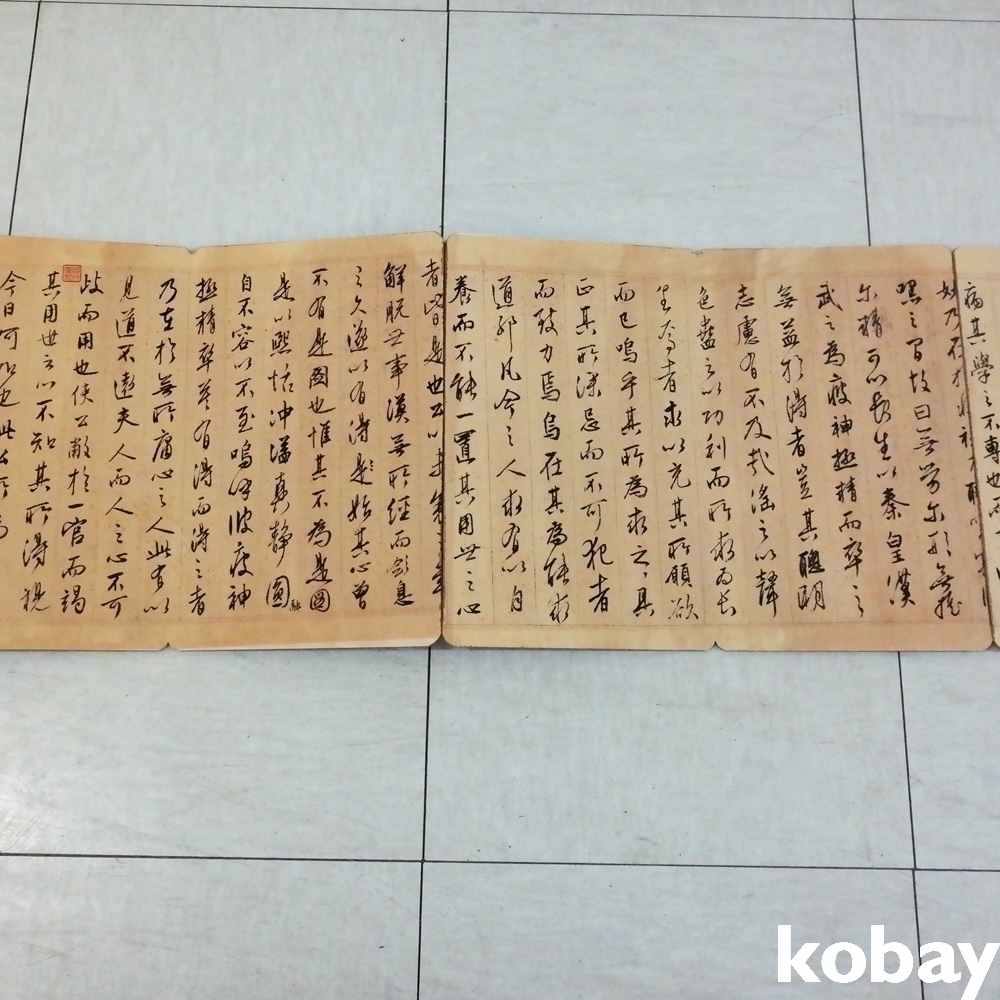 病其學之不專也而
妙乃在於
嘿之間故曰無勞爾形無搖
爾精可以長生以秦皇漢
武之為疲神極精而卒之
無益於得者豈其聰明
志慮有不及哉滛之以聲
色蠱之以功利而所求而長
生為者求以充其所願欲
而已嗚乎其所為求之具
正其所深忌而不可犯者
而致力焉烏在其為能求
道邪凡今之人求有以自
養而不能一置其用世之心
者皆是也公以
解脫世事漠無所經而斂息
之久遂以有得是始其心曾
不有是圖也惟其不為是圖
是以熙恬沖瀜真靜圓融
自不容以不至嗚呼彼疲神
極精卒莫有得而得之者
乃在於無所庸心之人此有以
見道不遠夫人而人之心不可
歧而用也使公敝於一官而竭
其用世之心不知其所得視
今日何如也此公所為
kobay